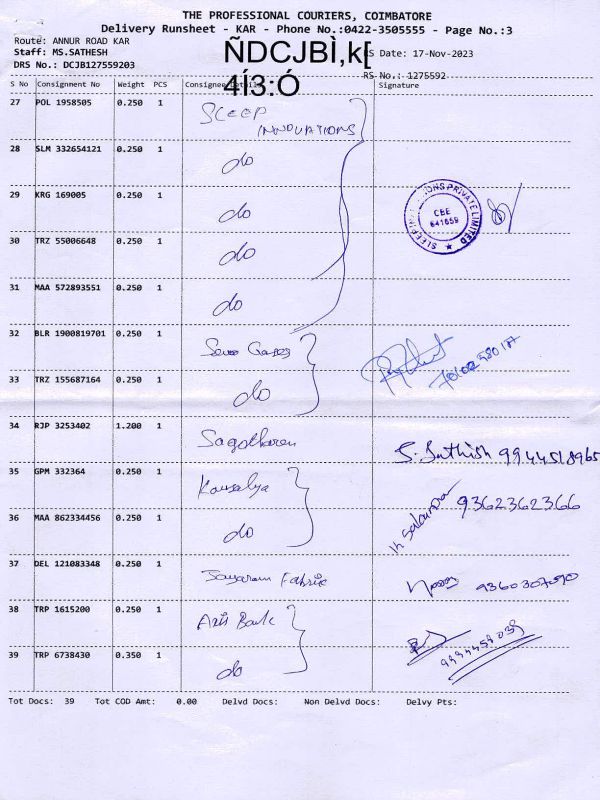 THE PROFESSIONAL COURIERS, COIMBATORE
Delivery Runsheet - KAR - Phone No.:0422-3505555 - Page No.:3
Route: ANNUR ROAD KAR
Staff: MS.SATHESH
DRS No.: DCJB127559203
ÑDCJBÌ,k[
4Í3:Ó
RS Date: 17-Nov-2023
RS No.: 1275592
S No Consignment No Weight PCS Consignee Details Signature
27 POL 1958505 0.250 1 SLEEP INNOVATIONS
28 SLM 332654121 0.250 1 do
29 KRG 169005 0.250 1 do
SLEEP INNOVATIONS PRIVATE LIMITED
CBE
641659
30 TRZ 55006648 0.250 1 do
31 MAA 572893551 0.250 1 do
32 BLR 1900819701 0.250 1
33 TRZ 155687164 0.250 1 do
34 RJP 3253402 1.200 1 S. Sathish 9944518965
35 GPM 332364 0.250 1 Kausalya 9362362366
36 MAA 862334456 0.250 1 do
37 DEL 121083348 0.250 1 Jayaram Fabric 9360307090
38 TRP 1615200 0.250 1 Axis Bank
39 TRP 6738430 0.350 1 do
Tot Docs: 39 Tot COD Amt: 0.00 Delvd Docs: Non Delvd Docs: Delvy Pts: